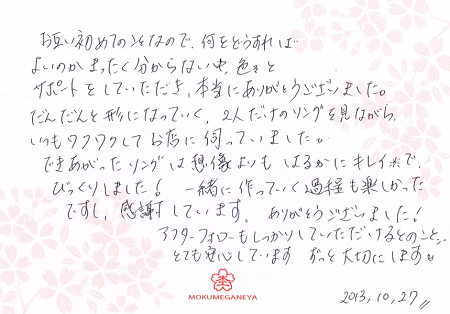 お互い初めてのことなので、何をどうすれば
よいのかまったく分からない中、色々と
サポートをしていただき、本当にありがとうございました。
だんだんと形になっていく、2人だけのリングを見ながら、
いつもワクワクしてお店に伺っていました。
できあがったリングは想像よりもはるかにキレイで、
びっくりしました！ 一緒に作っていく過程も楽しかった
ですし、感謝しています。ありがとうございました！
アフターフォローもしっかりしていただけるとのこと、
とても安心しています。ずっと大切にします
MOKUMEGANEYA
2013,10,27